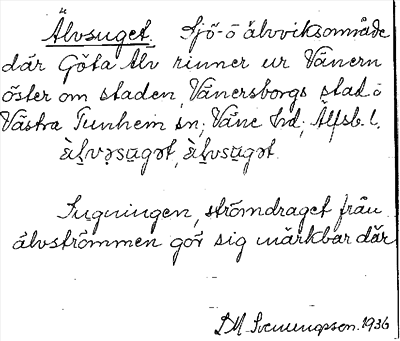 Älvsuget. Sjö- o älvviksområde
där Göta älv rinner ur Vänern
öster om staden, Vänersborgs stad o
Västra Tunhem sn; Väne hd; Älfsb. l.
Sugningen, strömdraget från
älvströmmen gör sig märkbar där
1936